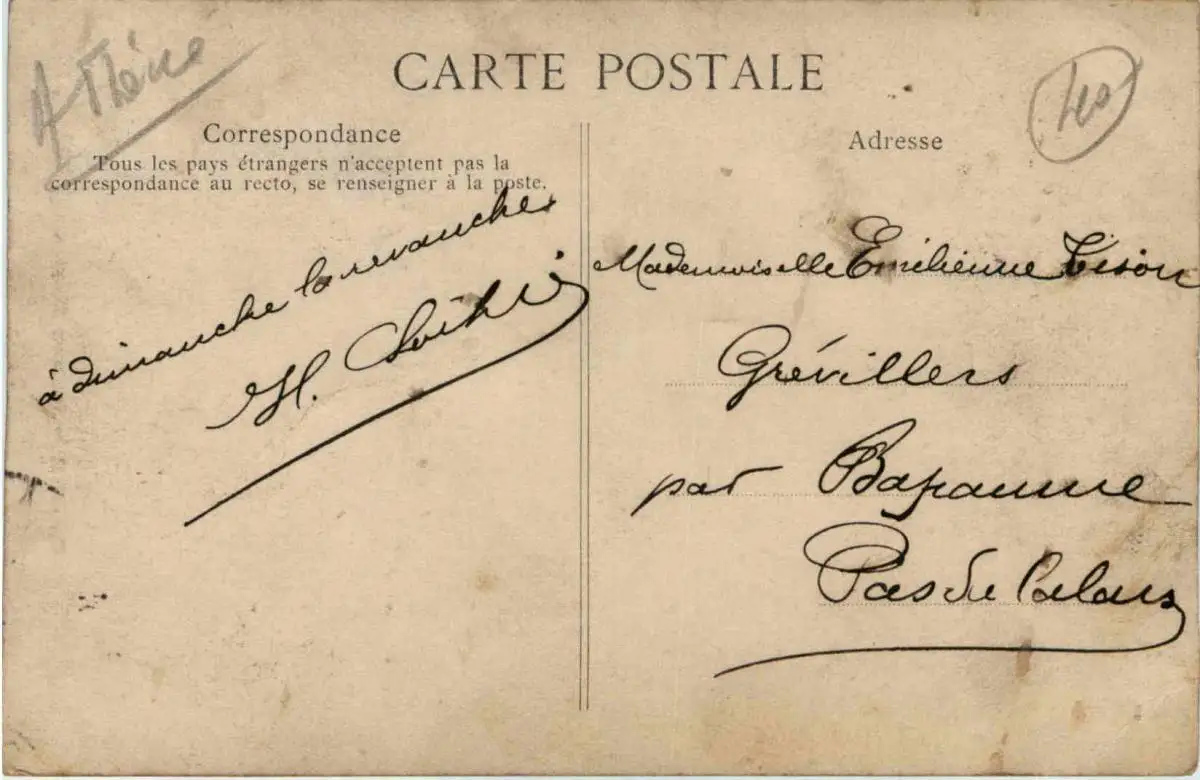 A Thène
CARTE POSTALE
40
Correspondance
Tous les pays étrangers n'acceptent pas la
correspondance au recto, se renseigner à la poste.
à dimanche la revanche
H.
Adresse
Mademoiselle Emilienne Tison
Grévillers
par Bapaume
Pas de Calais